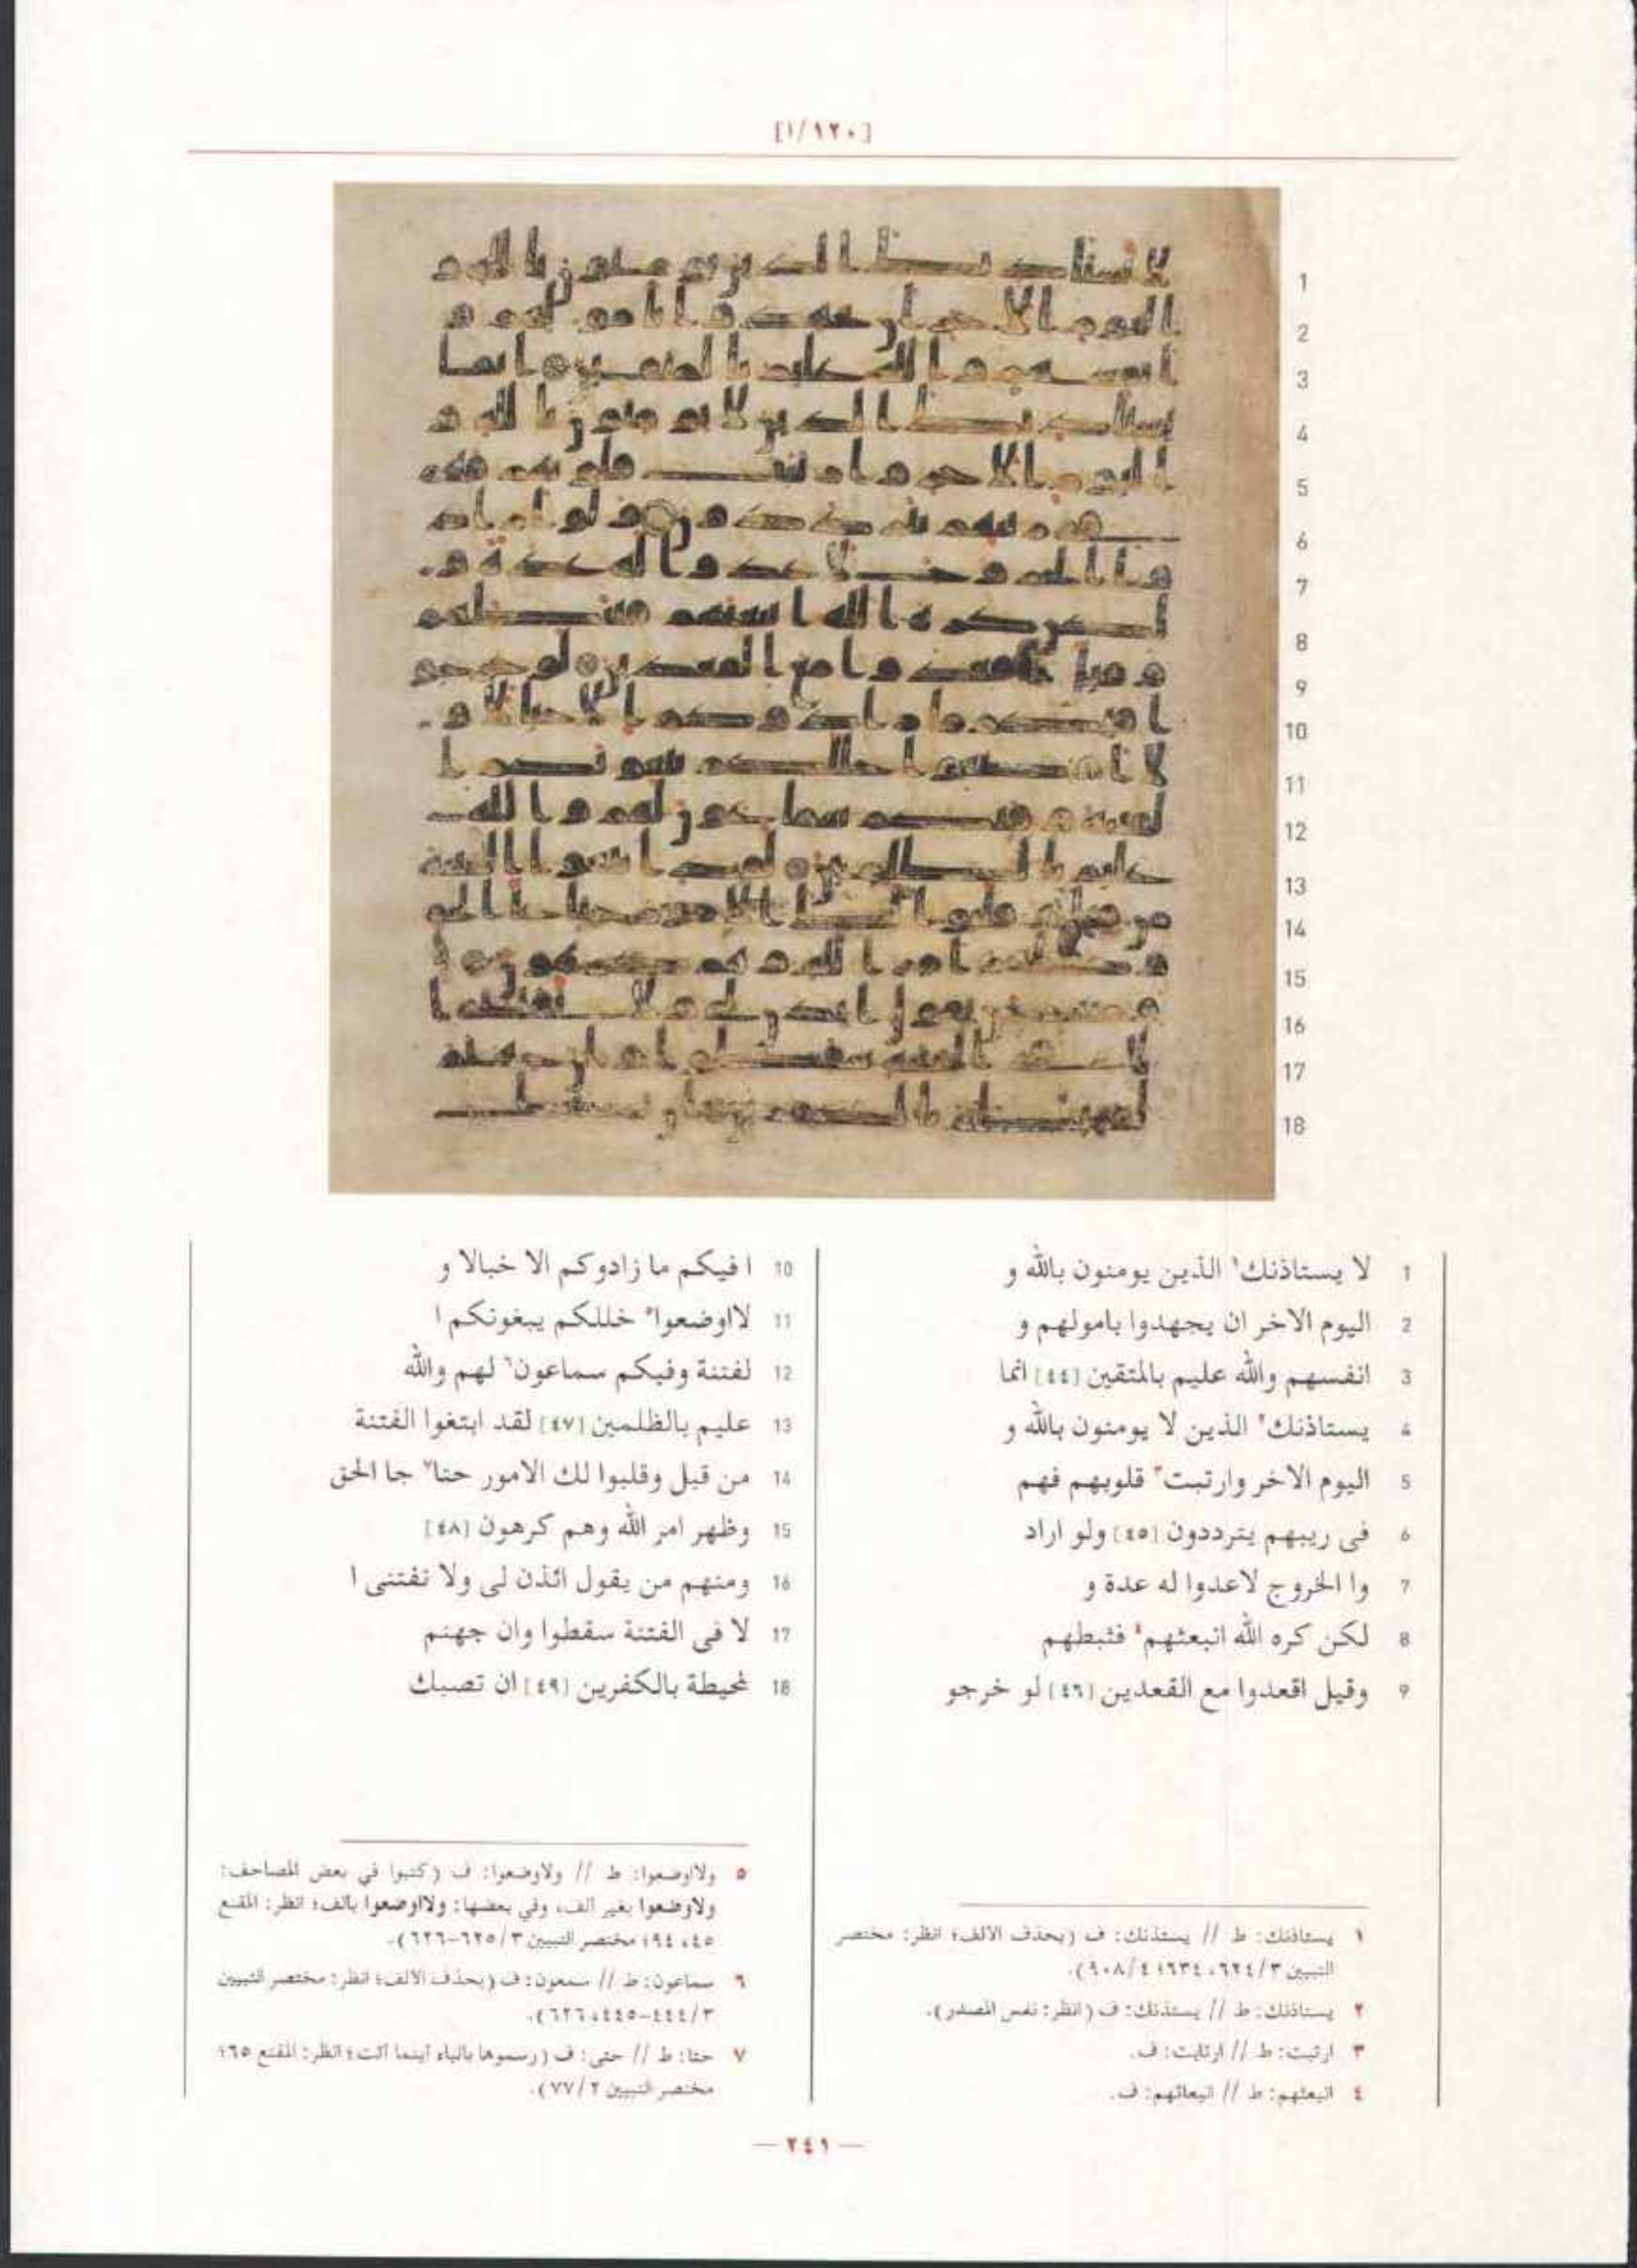 [١/١٢٠]
1 لا يستاذنك١ الذين يومنون بالله و
2 اليوم الاخر ان يجهدوا بامولهم و
3 انفسهم والله عليم بالمتقين [٤٤] انما
4 يستاذنك٢ الذين لا يومنون بالله و
5 اليوم الاخر وارتبت٣ قلوبهم فهم
6 فى ريبهم يترددون [٤٥] ولو اراد
7 وا الخروج لاعدوا له عدة و
8 لكن كره الله انبعثهم٤ فثبطهم
9 وقيل اقعدوا مع القعدين [٤٦] لو خرجو
10 ا فيكم ما زادوكم الا خبالا و
11 لااوضعوا٥ خللكم يبغونكم ا
12 لفتنة وفيكم سماعون٦ لهم والله
13 عليم بالظلمين [٤٧] لقد ابتغوا الفتنة
14 من قبل وقلبوا لك الامور حتا٧ جا الحق
15 وظهر امر الله وهم كرهون [٤٨]
16 ومنهم من يقول ائذن لى ولا تفتنى ا
17 لا فى الفتنة سقطوا وان جهنم
18 لمحيطة بالكفرين [٤٩] ان تصبك
١ يستاذنك: ط // يستذنك: ف (بحذف الالف؛ انظر: مختصر
التبيين ٣/٦٢٤، ٦٣٤؛ ٤/٩٠٨).
٢ يستاذنك: ط // يستذنك: ف (انظر: نفس المصدر).
٣ ارتبت: ط // ارتابت: ف.
٤ انبعثهم: ط // انبعاثهم: ف.
٥ ولااوضعوا: ط // ولاوضعوا: ف (كتبوا في بعض المصاحف:
ولاوضعوا بغير الف، وفي بعضها: ولااوضعوا بالف؛ انظر: المقنع
٤٥، ٩٤؛ مختصر التبيين ٣/٦٢٥-٦٢٦).
٦ سماعون: ط // سمعون: ف (بحذف الالف؛ انظر: مختصر التبيين
٣/٤٤٤-٤٤٥، ٦٢٦).
٧ حتا: ط // حتى: ف (رسموها بالياء أينما أتت؛ انظر: المقنع ٦٥؛
مختصر التبيين ٢/٧٧).
— ٢٤١ —